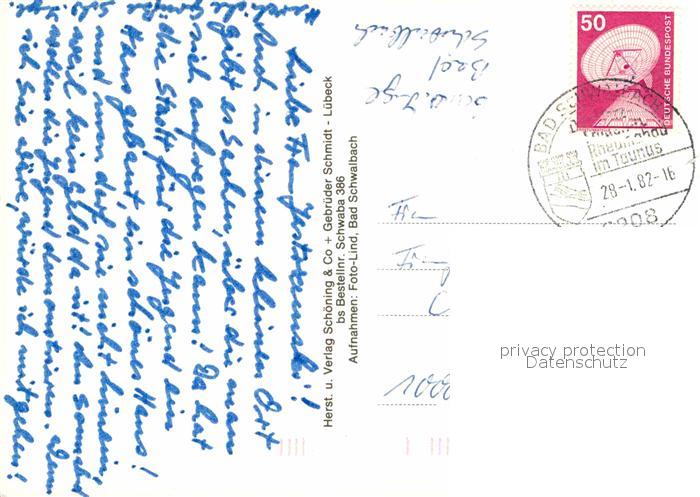 Liebe Frau
Auch in diesem kleinen Ort
gibt es Sachen, über die man
sich aufregen kann! Da hat
die Stadt für die Jugend ein
Haus gebaut, ein schönes Haus!
und nun darf sie nicht hinein,
weil kein Geld da ist! Am Sonnabend
wollen die Jugend demonstrieren. Wenn
ich sie wäre, würde ich mitgehen!
Herst. u. Verlag Schöning & Co + Gebrüder Schmidt - Lübeck
bs Bestellnr. Schwaba 386
Aufnahmen: Foto-Lind, Bad Schwalbach
Bad
Schwalbach
50
DEUTSCHE BUNDESPOST
BAD SCHWALBACH
Rheingau
im Taunus
28-1.82-16
6208
privacy protection
Datenschutz